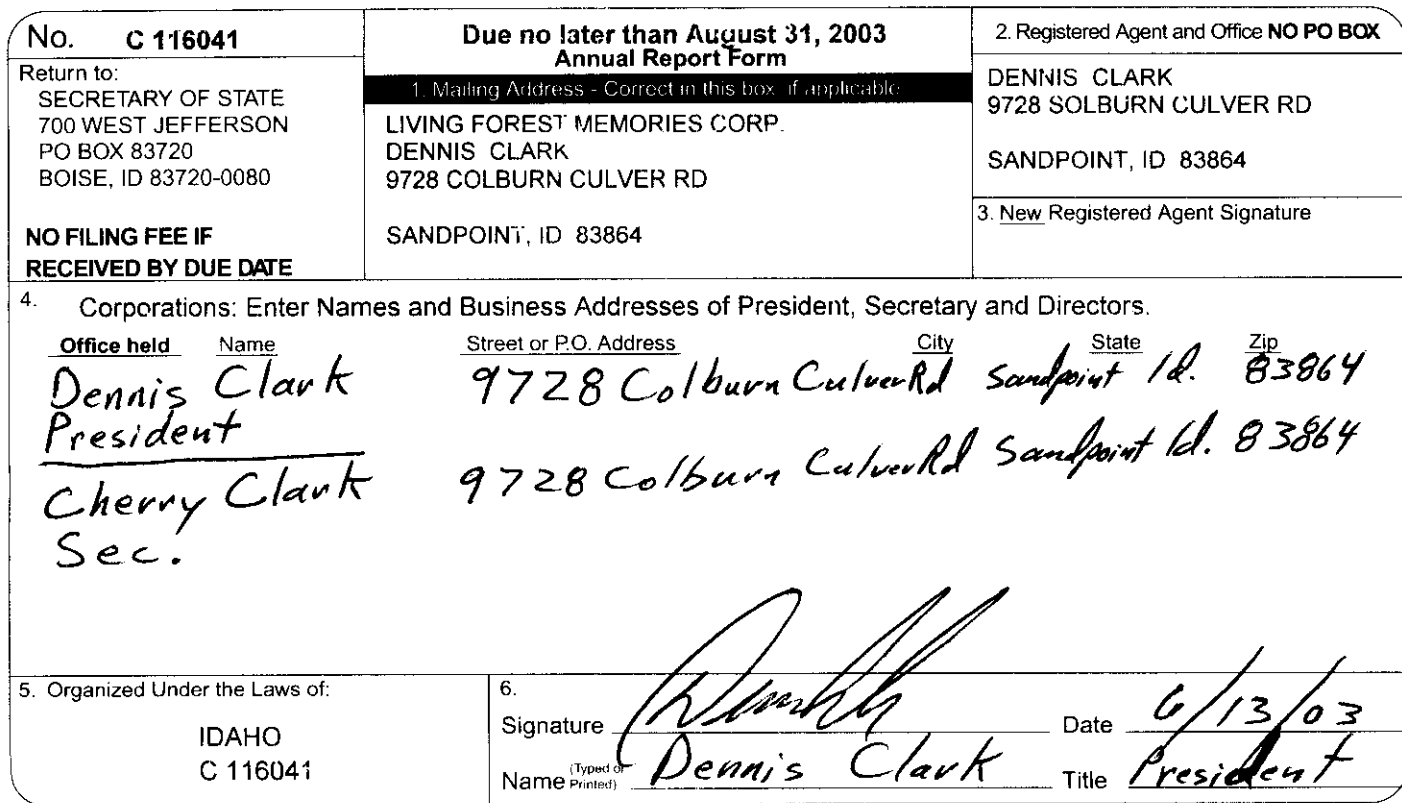 No. C 116041
Return to:
SECRETARY OF STATE
700 WEST JEFFERSON
PO BOX 83720
BOISE, ID 83720-0080
NO FILING FEE IF
RECEIVED BY DUE DATE
Due no later than August 31, 2003
Annual Report Form
1. Mailing Address - Correct in this box if applicable
LIVING FOREST MEMORIES CORP.
DENNIS CLARK
9728 COLBURN CULVER RD
SANDPOINT, ID 83864
2. Registered Agent and Office NO PO BOX
DENNIS CLARK
9728 SOLBURN CULVER RD
SANDPOINT, ID 83864
3. New Registered Agent Signature
4. Corporations: Enter Names and Business Addresses of President, Secretary and Directors.
Office held Name Street or P.O. Address City State Zip
Dennis Clark 9728 Colburn Culver Rd Sandpoint Id. 83864
President
Cherry Clark 9728 Colburn Culver Rd Sandpoint Id. 83864
Sec.
5. Organized Under the Laws of:
IDAHO
C 116041
6.
Signature Date 6/13/03
Name (Typed or Printed) Dennis Clark Title President